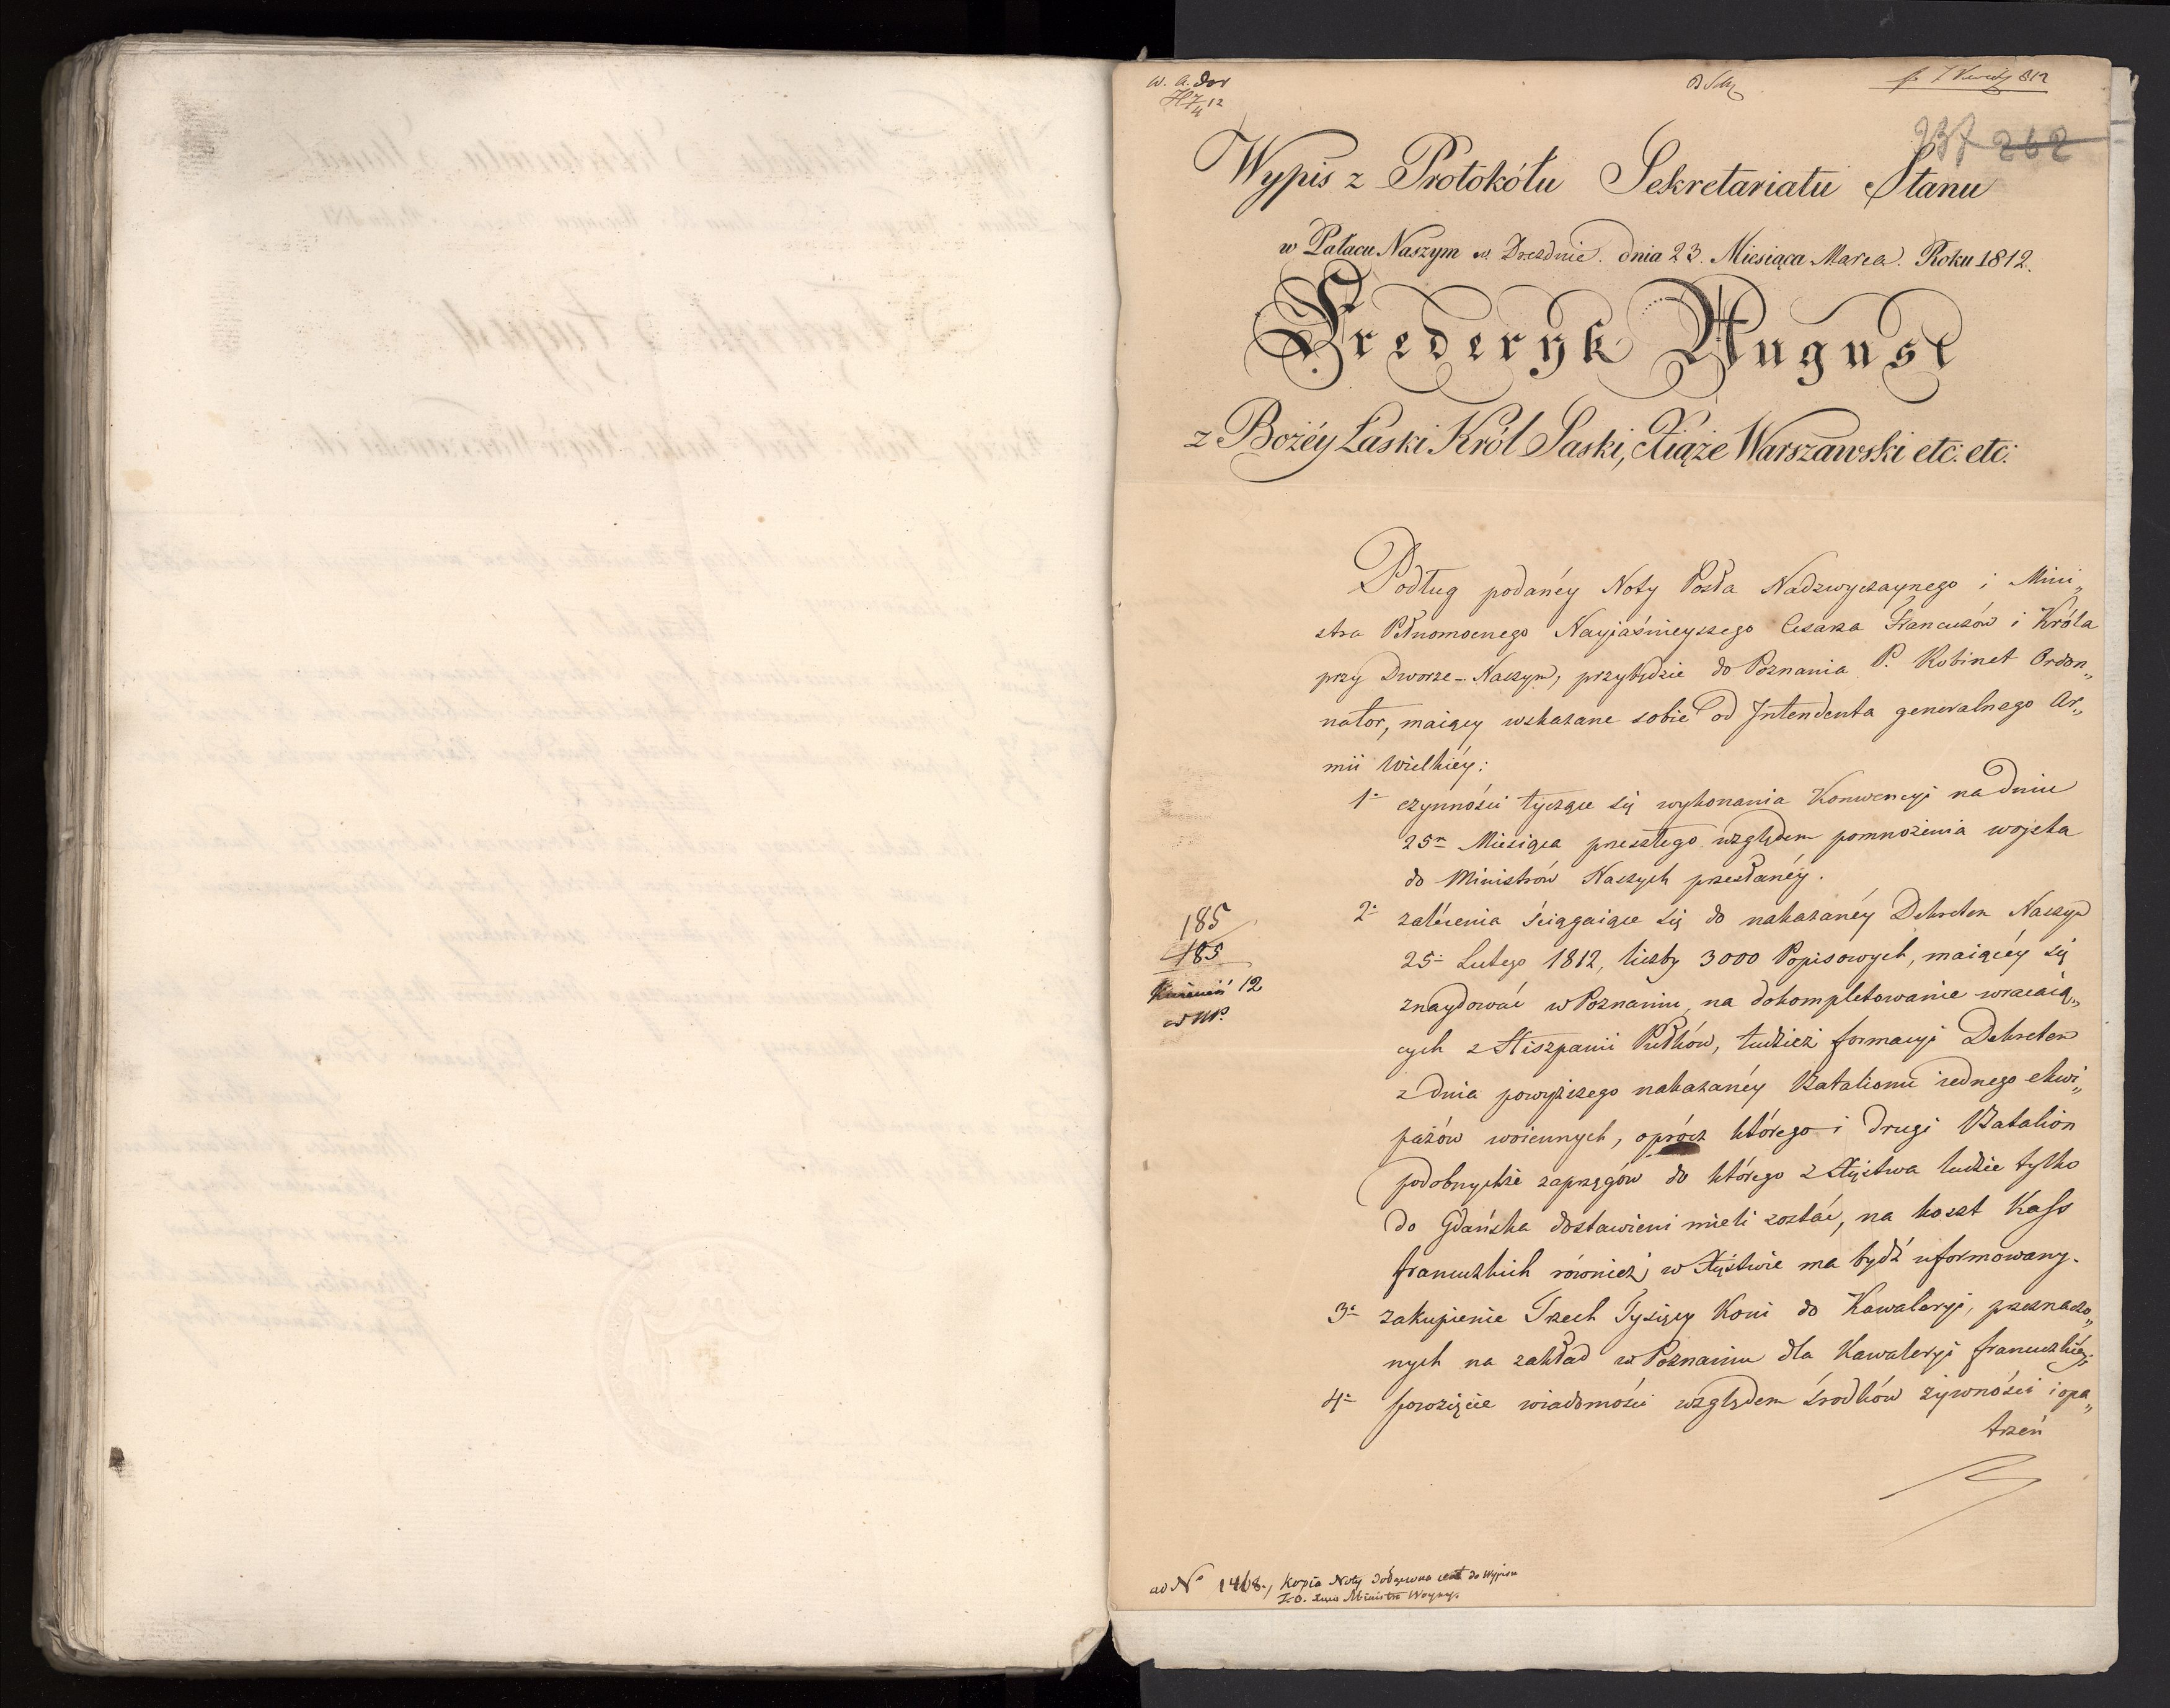 W. A. Dov
B Sctz
812
237 262
Wypis z Protokółu Sekretariatu Stanu
w Pałacu Naszym w Dreznie. dnia 23. Miesiąca Marca. Roku 1812.
Frederyk August
z Bożéy Łaski Król Saski, Xiąże Warszawski etc: etc:
Podług podanéy Noty Posła Nadzwyczaynego i Mini„
stra Pełnomocnego Nayjaśnieyszego Cesarza Francuzów i Króla
przy Dworze Naszym, przybędzie do Poznania P. Robinet Ordon„
nator, maiący wskazane sobie od Intendenta generalnego Ar„
mii Wielkiéy:
1º czynności tyczące się wykonania Konwencyi na dniu
25m Miesiąca przeszłego względem pomnożenia wojska
do Ministrów Naszych przesłanéy.
2º zalécenia ściągaiące się do nakazanéy Dekretem Naszym
25º Lutego 1812, liczby 3000 Popisowych, maiącéy się
znaydować w Poznaniu, na dokompletowanie wracaią„
cych z Hiszpanii Pułków, tudzież formacyi Dekretem
z dnia powyższego nakazanéy Batalionu iednego ekwi„
pażów woiennych, oprócz którego i drugi Batalion
podobnychże zaprzęgów do którego z Xięstwa ludzie tylko
do Gdańska dostawieni mieli zostać, na koszt Kass
francuzkich również w Xięstwie ma bydź uformowany.
3º zakupienie Trzech Tysięcy Koni do Kawaleryi, przeznaczo„
nych na zakład w Poznaniu dla Kawaleryi francuzkiéy.
4º powzięcie wiadomości względem środków żywności i opa„
trzeń
185
185
12
ad No 1468., Kopia Noty dołączona iest do Wypisu
Ministra Woyny.